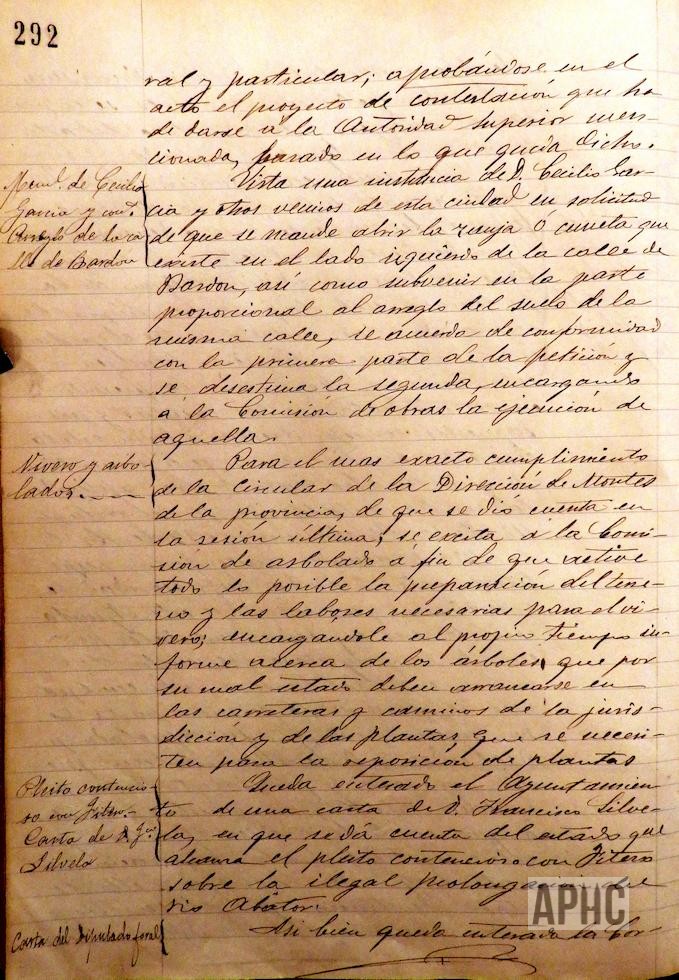 292
ral y particular; aprobándose en el
acto el proyecto de contestación que ha
de darse á la Autoridad Superior men-
cionada, basado en lo que queda dicho.
de Cecilio
Garcia y
Arreglo de la ca
lle de Bardon
Vista una instancia de D. Cecilio Gar-
cia y otros vecinos de esta ciudad en solicitud
de que se mande abrir la zanja ó cuneta que
existe en el lado izquierdo de la calle de
Bardon, así como subvenir en la parte
proporcional al arreglo del suelo de la
misma calle, se acuerda de conformidad
con la primera parte de la petición y
se desestima la segunda, encargando
á la Comisión de obras la ejecución de
aquella.
Vivero y arbo-
lados.
Para el mas exacto cumplimiento
de la Circular de la Dirección de Montes
de la provincia, de que se dio cuenta en
la sesión última, se excita á la Comi-
sión de arbolado á fin de que active
todo lo posible la preparación del terre-
no y las labores necesarias para el vi-
vero; encargandole al propio tiempo in-
forme acerca de los árboles, que por
su mal estado deben arrancarse en
las carreteras y caminos de la juris-
dicción y de las plantas que se necesi-
ten para la reposición de plantas
Pleito contencio-
so con Fitero.-
Carta de D. Fco.
Silvela
Queda enterado el Ayuntamien
to de una carta de D. Francisco Silve-
la, en que se dá cuenta del estado que
alcanza el pleito contencioso con Fitero
sobre la ilegal prolongación del
rio Abátor.
Carta del Diputado foral
Asi bien queda enterada la Cor-
APHC